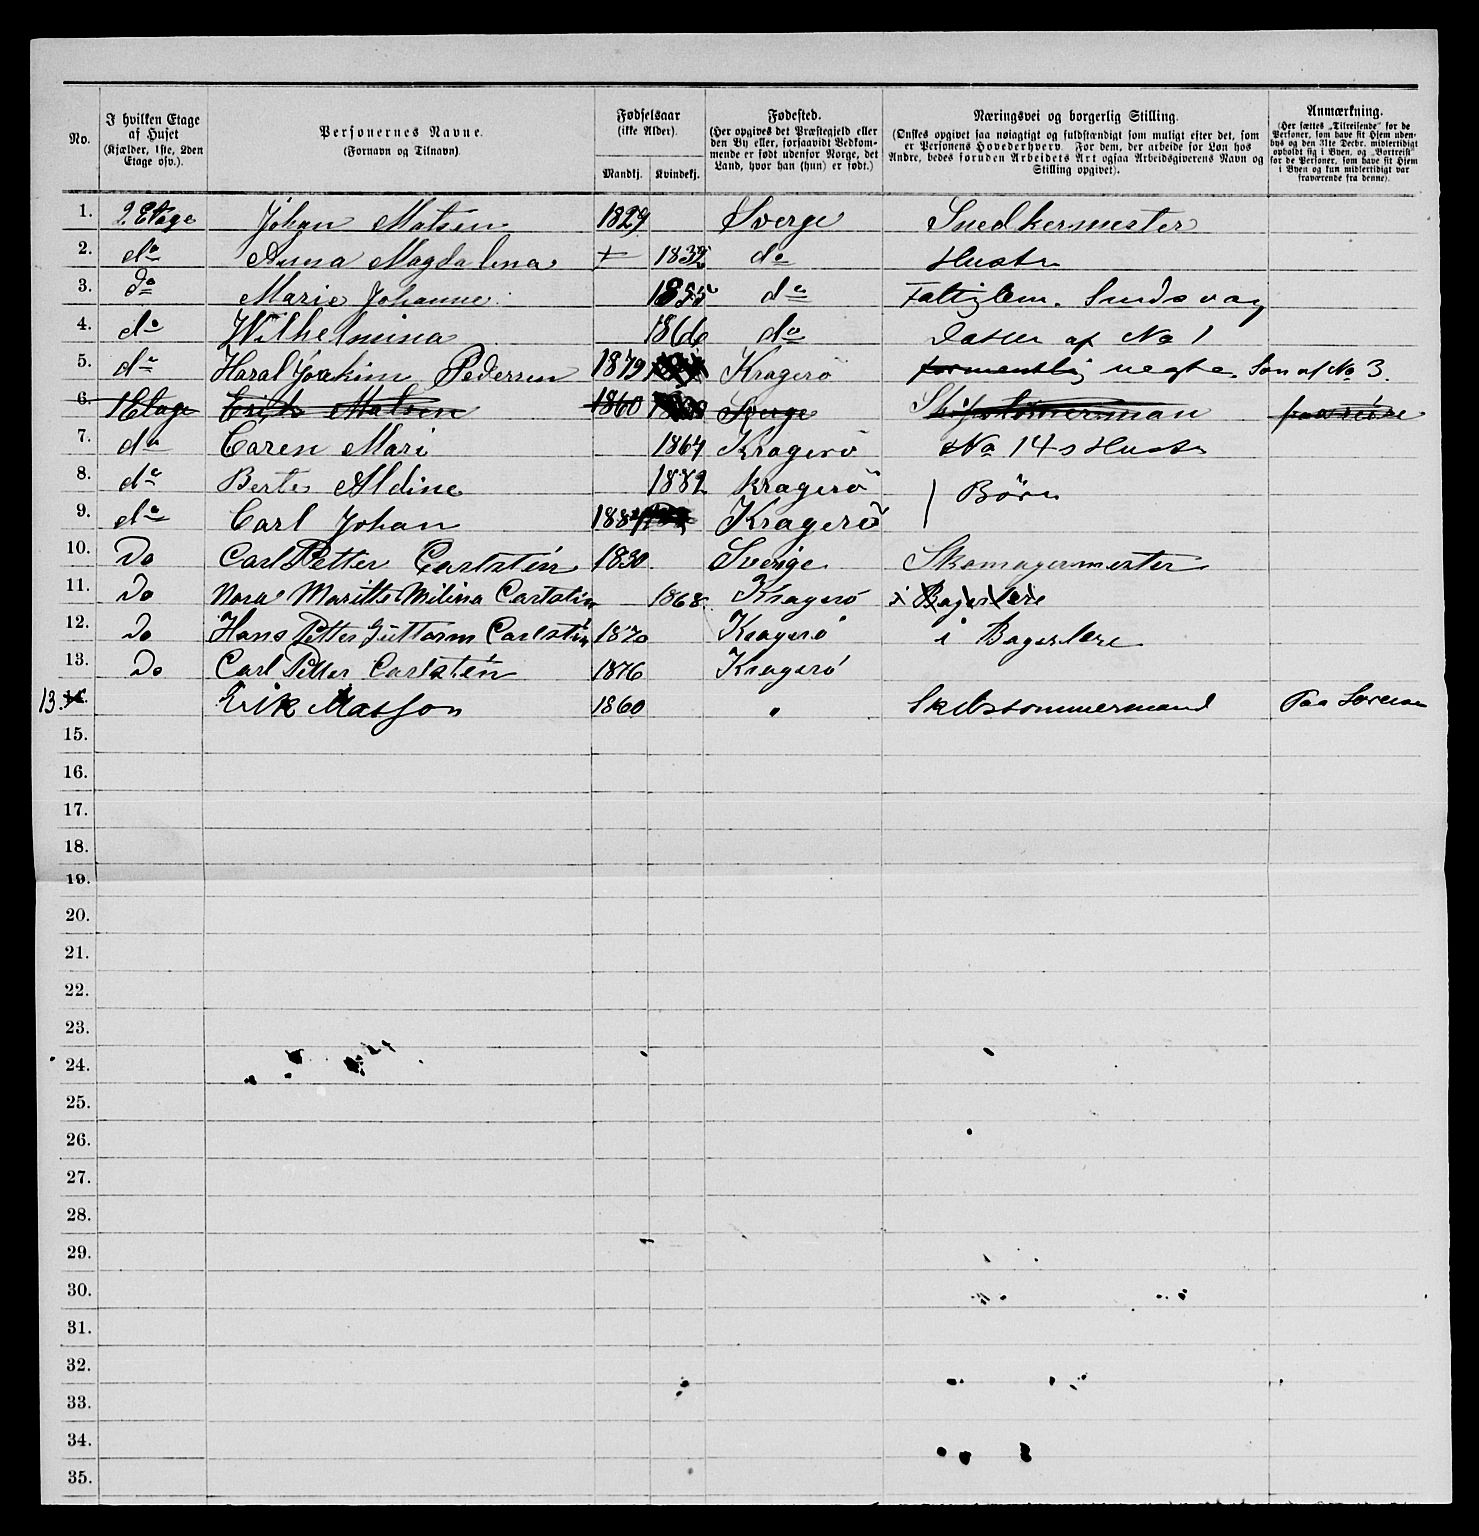 No.
I hvilken Etage
af Huset
(Kjælder, 1ste, 2den
Etage osv.).
Personernes Navne.
(Fornavn og Tilnavn).
Fødselsaar
(ikke Alder).
Mandkj. Kvindekj.
Fødested.
(Her opgives det Præstegjeld eller
den By eller, forsaavidt Vedkom-
mende er født udenfor Norge, det
Land, hvor han (hun) er født.)
Næringsvei og borgerlig Stilling.
(Ønskes opgivet saa nøiagtigt og fuldstændigt som muligt efter det, som
er Personens Hovederhverv. For dem, der arbeide for Løn hos
Andre, bedes foruden Arbeidets Art ogsaa Arbeidsgiverens Navn og
Stilling opgivet).
Anmærkning.
(Her sættes „Tilreisende" for de
Personer, som have sit Hjem uden-
bys og den 31te Decbr. midlertidigt
opholdt sig i Byen, og „Bortreist"
for de Personer, som have sit Hjem
i Byen og kun midlertidigt var
fraværende fra denne).
1. 2 Etage Johan Matsen 1829 Sverge Snedkermester
2. do Anna Magdalena + 1832 do Hustr
3. do Marie Johanne 1855 do
4. do Wilhelmina 1866 do Datter af No 1
5. do Haral Joakim Pedersen 1879 Kragerø formentlig uegte. Søn af No 3.
6. 1 Etage Erik Matsen 1860 Sverge Skipstømerman
7. do Caren Mari 1864 Kragerø No 14s Hustr
8. do Berte Aldine 1882 Kragerø Børn
9. do Carl Johan 1884 Kragerø
10. Do Carl Petter Carlstén 1830 Sverige Skomagermester
11. Do Nora Maritte Milina Carlstén 1868 Kragerø i Bagerlære
12. Do Hans Petter Guttorm Carlstén 1870 Kragerø i Bagerlære
13. Do Carl Petter Carlstén 1876 Kragerø
13. 14. Erik Matsson 1860 " Skibstømmermand Paa
15.
16.
17.
18.
19.
20.
21.
22.
23.
24.
25.
26.
27.
28.
29.
30.
31.
32.
33.
34.
35.